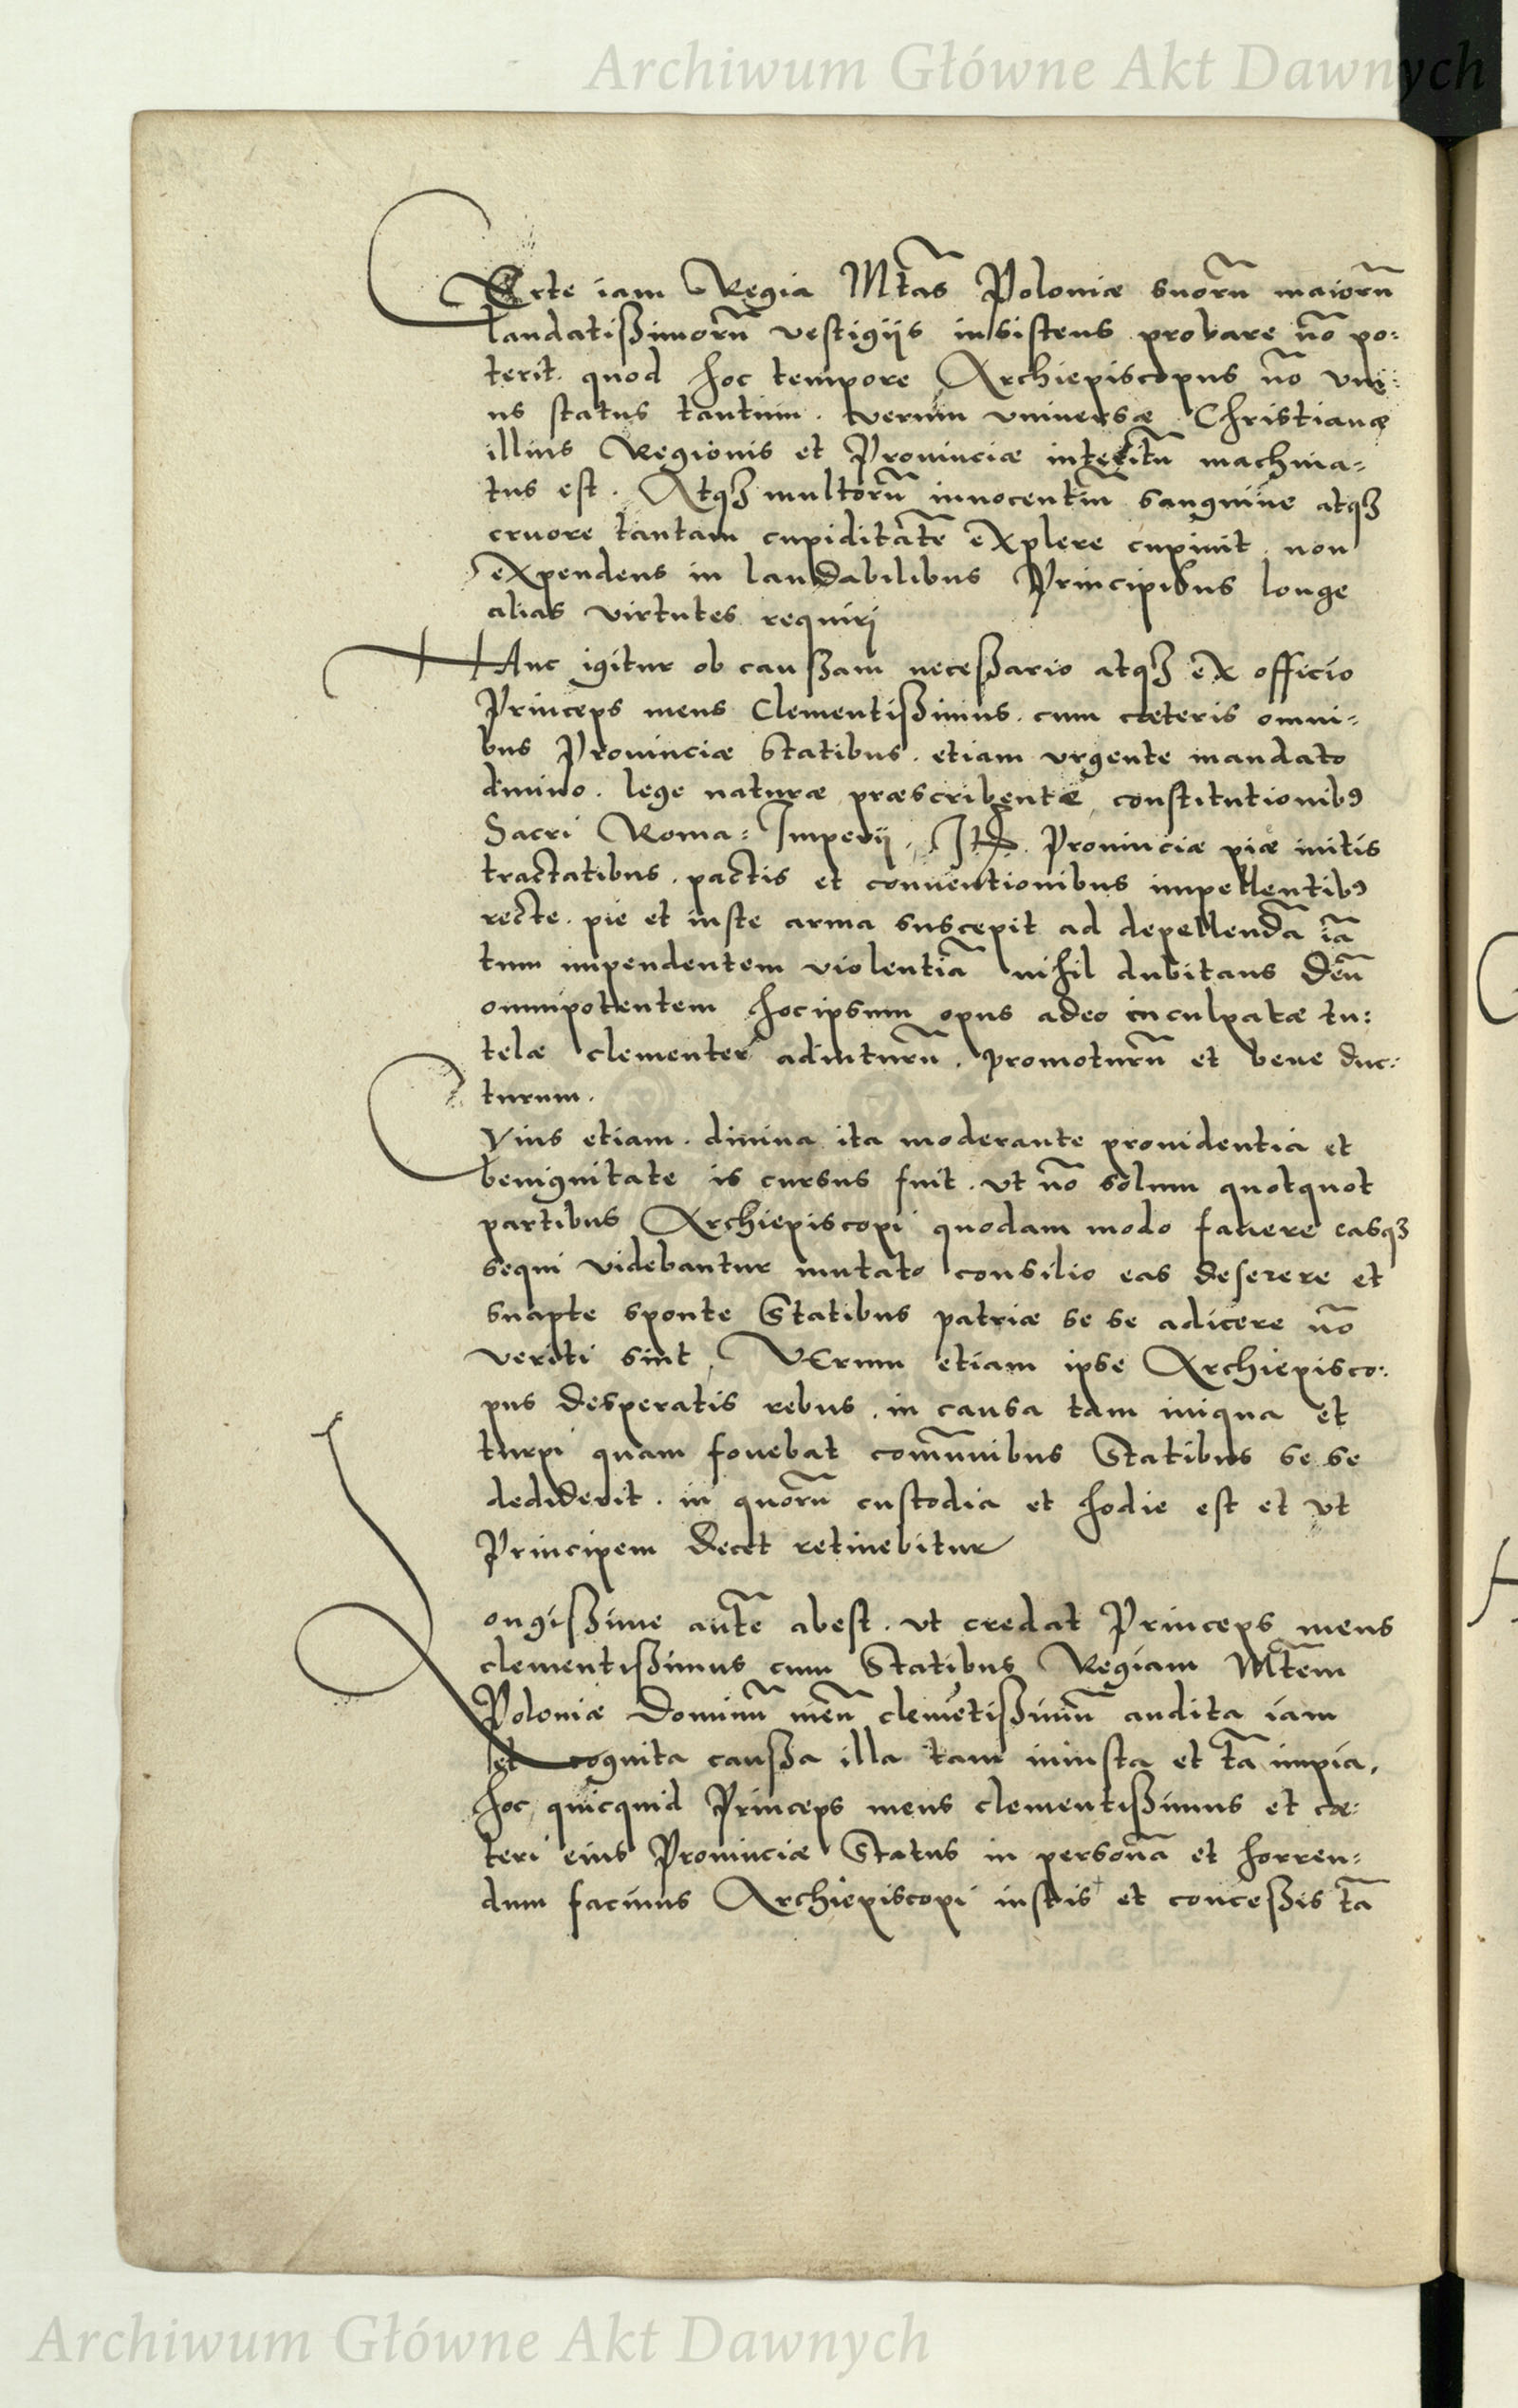 Archiwum Główne Akt Dawnych
Certe iam Regia Mtãs Poloniæ suorũ maiorũ
laudatißimorũ vestigijs insistens probare nõ po:
terit. quod hoc tempore Archiepiscopus nõ vni:
us status tantum. verum vniversæ Christianæ
illius Regionis et Provinciæ interitũ machina=
tus est. Atqꝫ multorũ innocentiũ sanguine atqꝫ
cruore tantam cupiditatẽ explere cupiuit. non
expendens in laudabilibus Principibus longe
alias virtutes requirj
HAnc igitur ob caußam neceßario atqꝫ ex officio
Princeps meus Clementißimus. cum cæteris omni=
bus Prouinciæ Statibus. etiam vrgente mandato
diuino. lege naturæ præscribente, constitutionibꝰ
Sacri Roma= Imperij, Prouinciæ piæ initis
tractatibus. pactis et conventionibus impellentibꝰ
recte. pie et iuste arma suscepit ad depellendã tã
tum impendentem violentiã nihil dubitans Deũ
omnipotentem hocipsum opus adeo inculpatæ tu:
telæ clementer adiuturũ. promoturũ et bene duc:
turum.
CVius etiam. diuina ita moderante prouidentia et
benignitate is cursus fuit. vt nõ solum quotquot
partibus Archiepiscopi quodam modo fauere easqꝫ
sequi videbantur mutato consilio eas deserere et
suapte sponte Statibus patriæ se se adicere nõ
veriti sint, VErum etiam ipse Archiepisco:
pus desperatis rebus. in causa tam iniqua et
turpi quam fouebat comũnibus Statibus se se
dediderit. in quorũ custodia et hodie est et vt
Principem decet retinebitur
Longißime autẽ abest. vt credat Princeps meus
clementißimus cum Statibus Regiam Mtẽm
Poloniæ Dominũ meũ clemẽtißimũ audita iam
et cognita caußa illa tam iniusta et tã impia,
hoc quicquid Princeps meus clementißimus et cæ:
teri eius Prouinciæ Status in personã et horren=
dum facinus Archiepiscopi iustis et conceßis tã
Archiwum Główne Akt Dawnych